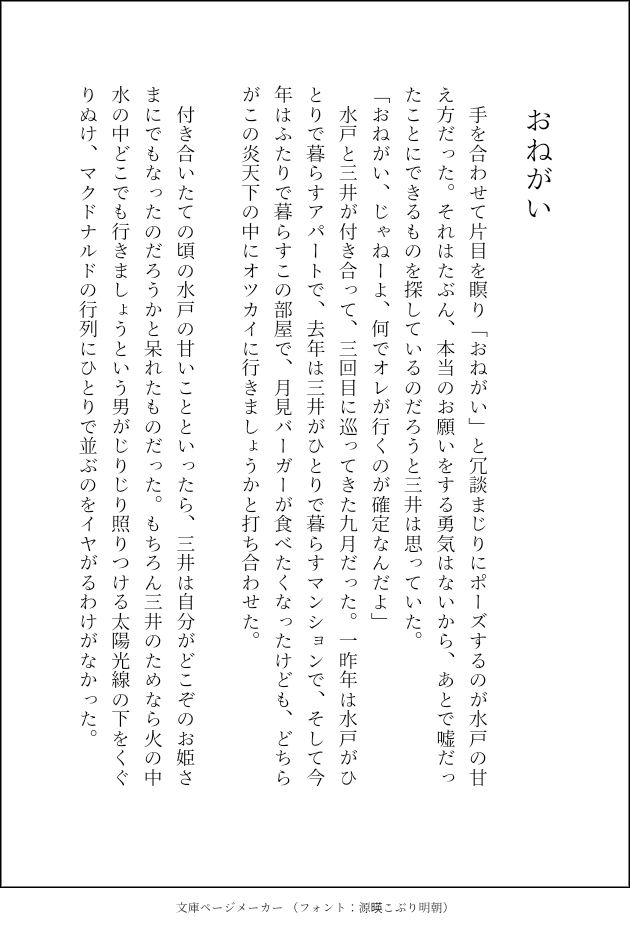 おねがい
　手を合わせて片目を瞑り「おねがい」と冗談まじりにポーズするのが水戸の甘
え方だった。それはたぶん、本当のお願いをする勇気はないから、あとで嘘だっ
たことにできるものを探しているのだろうと三井は思っていた。
「おねがい、じゃねーよ、何でオレが行くのが確定なんだよ」
　水戸と三井が付き合って、三回目に巡ってきた九月だった。一昨年は水戸がひ
とりで暮らすアパートで、去年は三井がひとりで暮らすマンションで、そして今
年はふたりで暮らすこの部屋で、月見バーガーが食べたくなったけども、どちら
がこの炎天下の中にオツカイに行きましょうかと打ち合わせた。
　付き合いたての頃の水戸の甘いことといったら、三井は自分がどこぞのお姫さ
まにでもなったのだろうかと呆れたものだった。もちろん三井のためなら火の中
水の中どこでも行きましょうという男がじりじり照りつける太陽光線の下をくぐ
りぬけ、マクドナルドの行列にひとりで並ぶのをイヤがるわけがなかった。
文庫ページメーカー（フォント：源暎こぶり明朝）